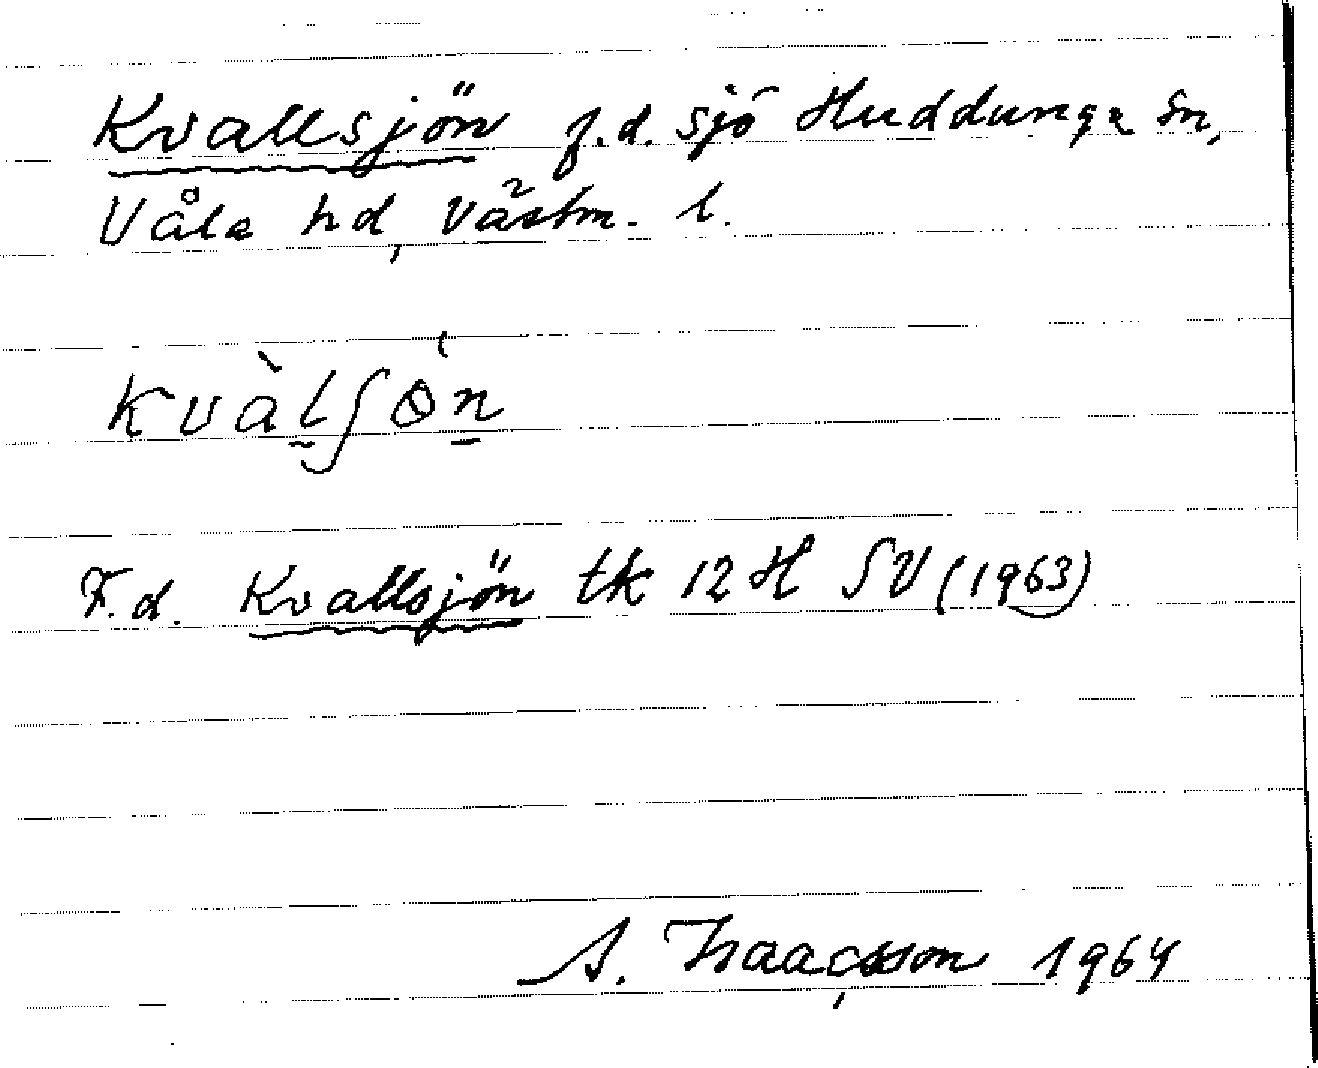 Kvallsjön f.d. sjö Huddunge sn,
Våla hd, Västm. l.
kvàlʃɵ́n
F.d. Kvallsjön tk 12H SV (1963)
A. Isaacsson 1964